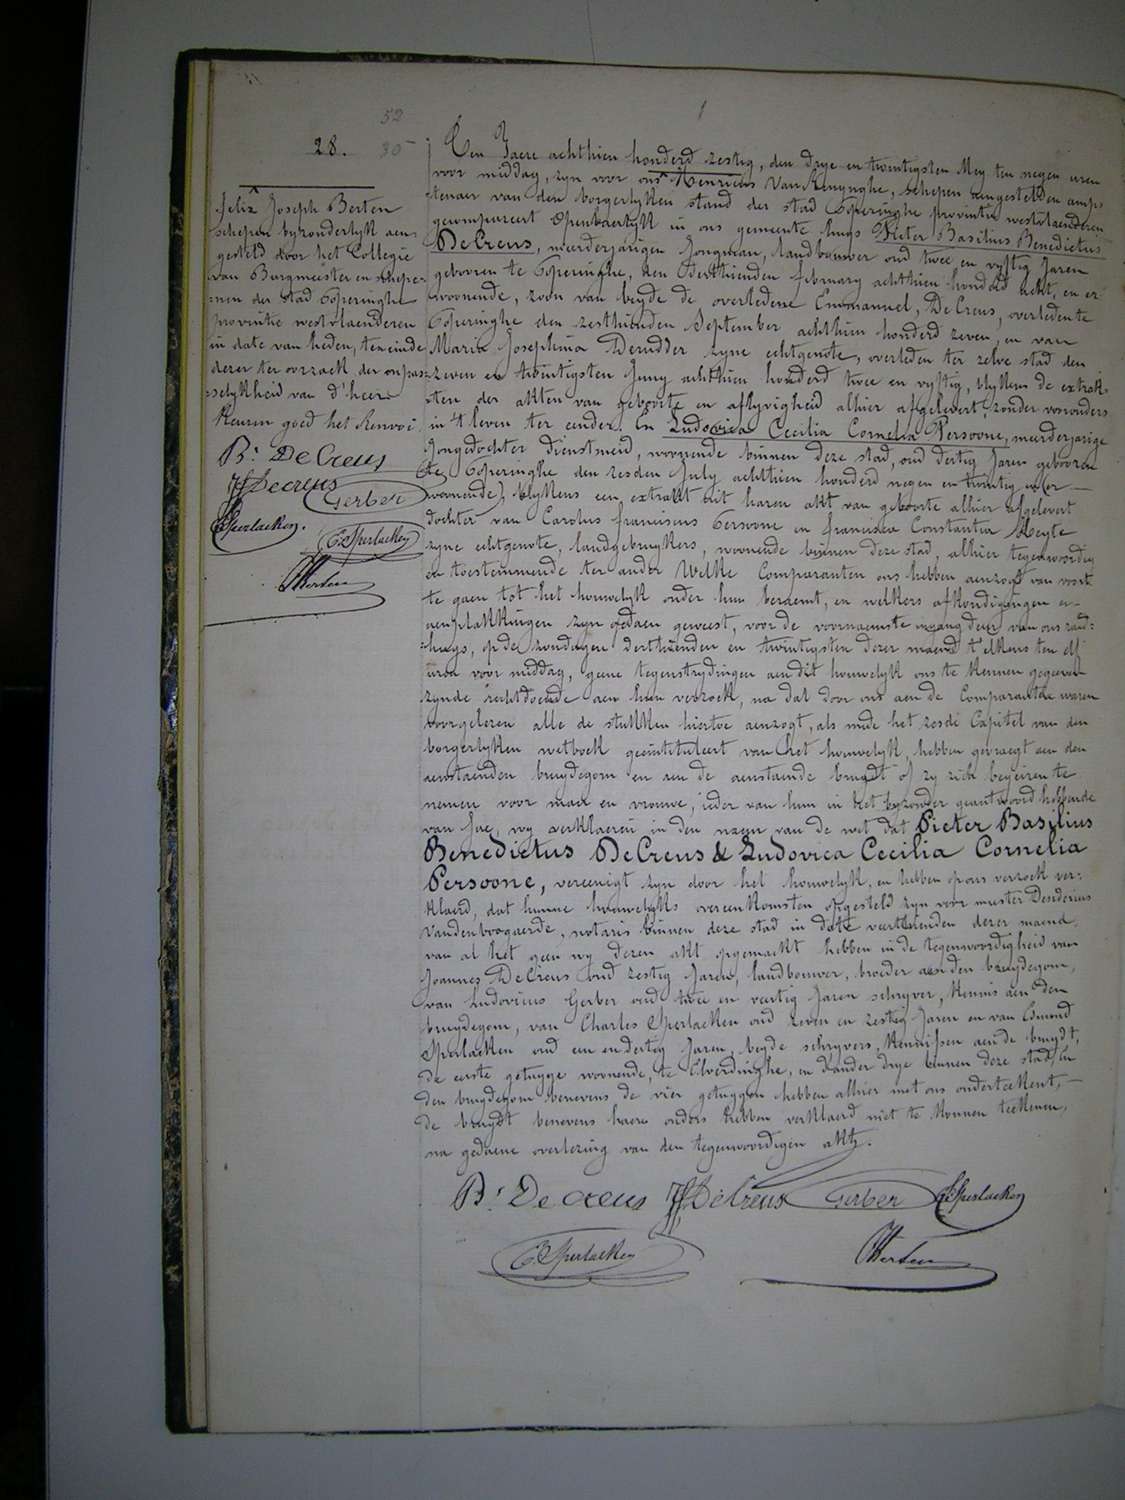 52
28. 30
Felix Joseph Berten
schepen byzonderlyk aen-
gesteld door het Collegie
van Burgmeester en schepe-
nen der stad Poperinghe
provintie westvlaenderen
in date van heden, ten einde
dezer ter oorzack der onpas-
selykheid van d'heer
Keuren goed het Renvoi
Bs. DeCreus
Decreus
Gerber
Sperlacken.
C. Sperlacken
Berten
Ten Jaere achthien honderd zestig, den drye en twintigsten Mey ten negen uren
voor middag, zyn voor ons Henricus Van Renynghe, schepen aengesteld den amp-
tenaer van den borgerlyken stand der stad Poperinghe provintie westvlaenderen
gecompareert openbaerlyk in ons gemeente huys Pieter Basilius Benedictus
DeCreus, meerderjarigen Jongman, landbouwer oud twee en vyftig Jaren
gebooren te Poperinghe, den derthienden february achthien honderd acht, en er
woonende, zoon van beyde de overledene Emmanuel, De Creus, overleden te
Poperinghe den zesthienden September achthien honderd zeven, en van
Maria Josephina Derudder zyne echtgenote, overleden ter zelve stad den
zeven en twintigsten Juny achthien honderd twee en vyftig, blykens de extrak-
ten der akten van geboorte en aflyvigheid alhier afgelevert, zonder voorouders
in 't leven ter eender. En Ludovica Cecilia Cornelia Persoone, meerderjarige
Jongedochter dienstmeid, woonende binnen deze stad, oud dertig Jaren gebooren
te Poperinghe den zesden July achthien honderd negen en twintig en er
woonende, blykens een extrakt uit haren akt van geboorte alhier afgelevert
dochter van Carolus franciscus Persoone en francisca Constantia Heyte
zyne echtgenote, landgebruykers, woonende binnen deze stad, alhier tegenwoordig
en toestemmende ter ander Welke Comparanten ons hebben aenzogt van voort
te gaen tot het houwelyk onder hun beraemt, en welkers afkondigingen en
aenplakkingen zyn gedaen geweest, voor de voornaemste ingang deur van ons raed-
huys, op de zondagen derthienden en twintigsten dezer maend t'elkens ten elf
uren voor middag, geene tegenstrydingen aen dit houwelyk ons te kennen gegeven
zynde rechtdoende aen hun verzoek, na dat door ons aen de Comparanten waren
voorgelezen alle de stukken hiertoe aenzogt, als mede het zesde Capitel van den
borgerlyken wetboek geïntituleert van het houwelyk, hebben gevraegt aen den
aenstaenden bruydegom en aen de aenstaende bruydt of zy zich begeiren te
nemen voor man en vrouwe, ieder van hun in het byzonder geantwoord hebbende
van Jae, wy verklaeren in den naem van de wet dat Pieter Basilius
Benedictus DeCreus & Ludovica Cecilia Cornelia
Persoone, vereenigt zyn door het houwelyk, en hebben op ons verzoek ver-
klaerd, dat hunne houwelyks overeenkomsten opgesteld zyn voor meester Desiderius
Vandenboogaerde, notaris binnen deze stad in date veerthienden dezer maend
van al het geen wy dezen akt opgemackt hebben in de tegenwoordigheid van
Joannes DeCreus oud zestig Jaren, landbouwer, broeder aen den bruydegom,
van Ludovicus Gerber oud twee en veertig Jaren schryver, kennis aen den
bruydegom, van Charles Sperlacken oud zeven en zestig Jaren en van Edmond
Sperlacken oud een en dertig Jaren, beyde schryvers, kennissen aen de bruydt,
de eerste getuyge woonende, te Elverdinghe, en d'ander drye binnen deze stad, En
den bruydegom benevens de vier getuygen hebben alhier met ons onderteekent,
de bruydt benevens haere ouders hebben verklaerd niet te konnen teekenen,
na gedaene overlezing van den tegenwoordigen akt.
Bs. De Creus DeCreus Gerber Sperlacken
C. Sperlacken Berten